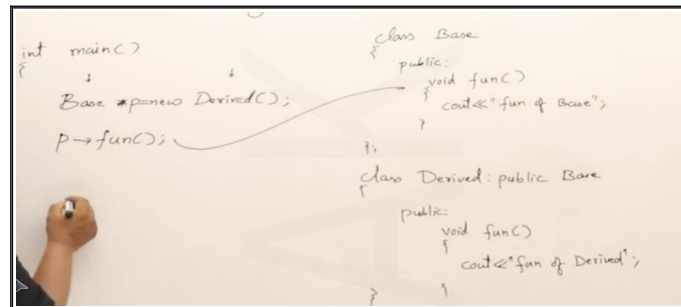 int main()
{
Base *p=new Derived();
p→fun();
class Base
{
public:
void fun()
{
cout<<"fun of Base";
}
};
class Derived: public Base
{
public:
void fun()
{
cout<<"fun of Derived";
}
}